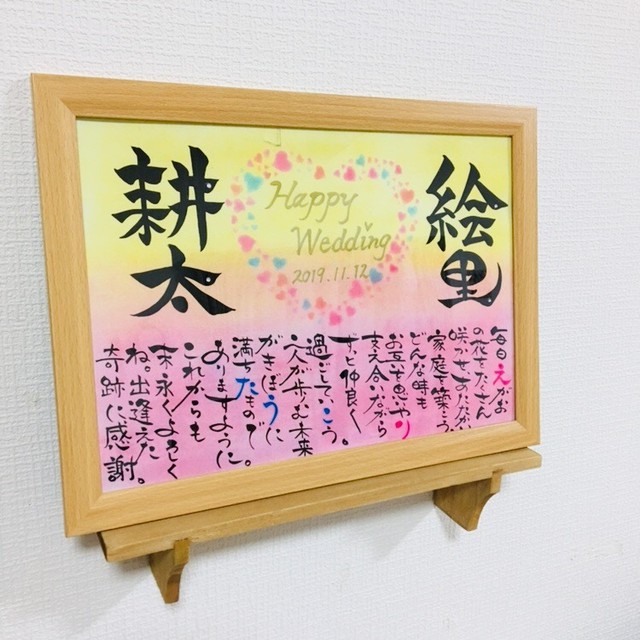 耕太
絵里
Happy
Wedding
2019.11.12
毎日えがお
の花をたくさん
咲かせながら
家庭を築こう。
どんな時も
お互い思いやり
支え合いながら
ずっと仲良く。
過ごしていこう。
二人が歩む未来
がきぼうに
満ちたもので
ありますように。
これからも
末永くよろしく
ね。出逢えた
奇跡に感謝。